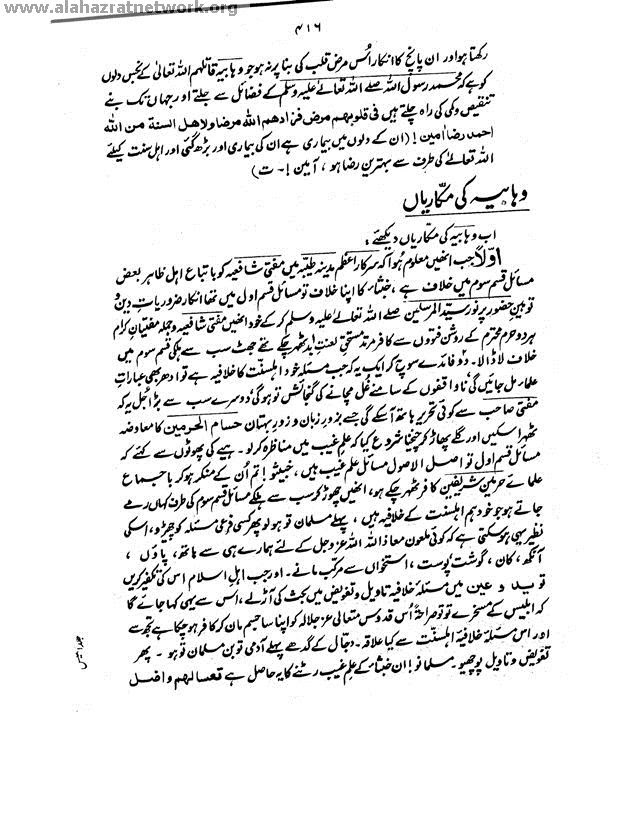 www.alahazratnetwork.org
۴۱۶
رکھتا ہو اور ان پانچ کا انکار اُس مرض قلب کی بنا پر نہ ہو جو وہابیہ قاتلھم اللہ تعالٰی کے نجس دلوں
کو ہے کہ محمد رسول اللہ صلے اللہ تعالٰی علیہ وسلم کے فضائل سے جلتے اور جہاں تک بنے
تنقیص وکمی کی راہ چلتے ہیں فی قلوبھم مرض فزادھم اللہ مرضا ولاھل السنۃ من اللہ
احمد رضا اٰمین ! (ان کے دلوں میں بیماری ہے ان کی بیماری اور بڑھ گئی اور اہل سنت کیلئے
اللہ تعالٰے کی طرف سے بہترین رضا ہو ، آمین !۔ ت)
وہابیہ کی مکّاریاں
اب وہابیہ کی مکّاریاں دیکھئے :
اوّلاً جب انھیں معلوم ہوا کہ سرکار اعظم مدینہ طیّبہ میں مفتی شافعیہ کو باتباع اہل ظاہر بعض
مسائل قسم سوم میں خلاف ہے ، خبثاء کا اپنا خلاف تو مسائل قسم اول میں تھا انکار ضروریات دین و
توہین حضور پر نور سیّد المرسلین صلے اللہ تعالٰی علیہ وسلم کر کے خود انھیں مفتی شافعیہ وجملہ مفتیان کرام
ہر دو حرم محترم کے روشن فتووں سے کافر مرتد مستحق لعنتِ ابد ٹھہر چکے تھے جھٹ سب سے ہلکی قسم سوم میں
خلاف لا ڈالا۔ دو فائدے سوچ کر ایک یہ کہ جب مسئلہ خود اہلسنت کا خلافیہ ہے تو ادھر بھی عباراتِ
علماء مل جائیں گی ناواقفوں کے سامنے غُل مچانے کی گنجائش تو ہوگی، دوسرے سب سے بڑا جُل یہ کہ
مفتی صاحب سے کوئی تحریر ہاتھ آسکے گی جسے بزور زبان و زورِ بہتان حسام الحرمین کا معاوضہ
ٹھہرا سکیں اور گلے پھاڑ کر چیخنا شروع کیا کہ علمِ غیب میں مناظرہ کرلو۔ ہیے کی پھوٹوں سے کہئے کہ
مسائل قسم اول تو اصل الاصول مسائل علم غیب ہیں ، خبیثو ! تم اُن کے منکر ہو کر باجماع
علمائے حرمین شریفین کافر ٹھہر چکے ہو، انھیں چھوڑ کر سب سے ہلکے مسائل قسم سوم کی طرف کہاں رمے
جاتے ہو جو خود ہم اہلسنت کے خلافیہ ہیں ، پہلے مسلمان تو ہولو پھر کسی فرعی مسئلہ کو چھیڑو، اسکی
نظیر یہی ہوسکتی ہے کہ کوئی ملعون معاذ اللہ اللہ عز وجل کے لئے ہمارے ہی سے ہاتھ ، پاؤں ،
آنکھ ، کان ، گوشت، پوست ، استخواں سے مرکب مانے۔ اور جب اہل اسلام اس کی تکفیر کریں
تو ید و عین میں مسئلہ خلافیہ تاویل و تفویض میں بحث کی آڑلے ، اس سے یہی کہا جائے گا
کہ ابلیس کے مسخرے تُو تو صراحۃً اُس قدوس متعالی عز جلالہ کو اپنا سا جسم مان کر کافر ہوچکا ہے تجھ سے
اور اس مسئلہ خلافیہ اہلسنّت سے کیا علاقہ۔ دجال کے گدھے پہلے آدمی تو بن مسلمان تو ہو ۔ پھر
تفویض و تاویل پوچھیو۔ مسلمانو ! ان خبثاء کے علمِ غیب رٹنے کا یہ حاصل ہے فتعسالھم واضل